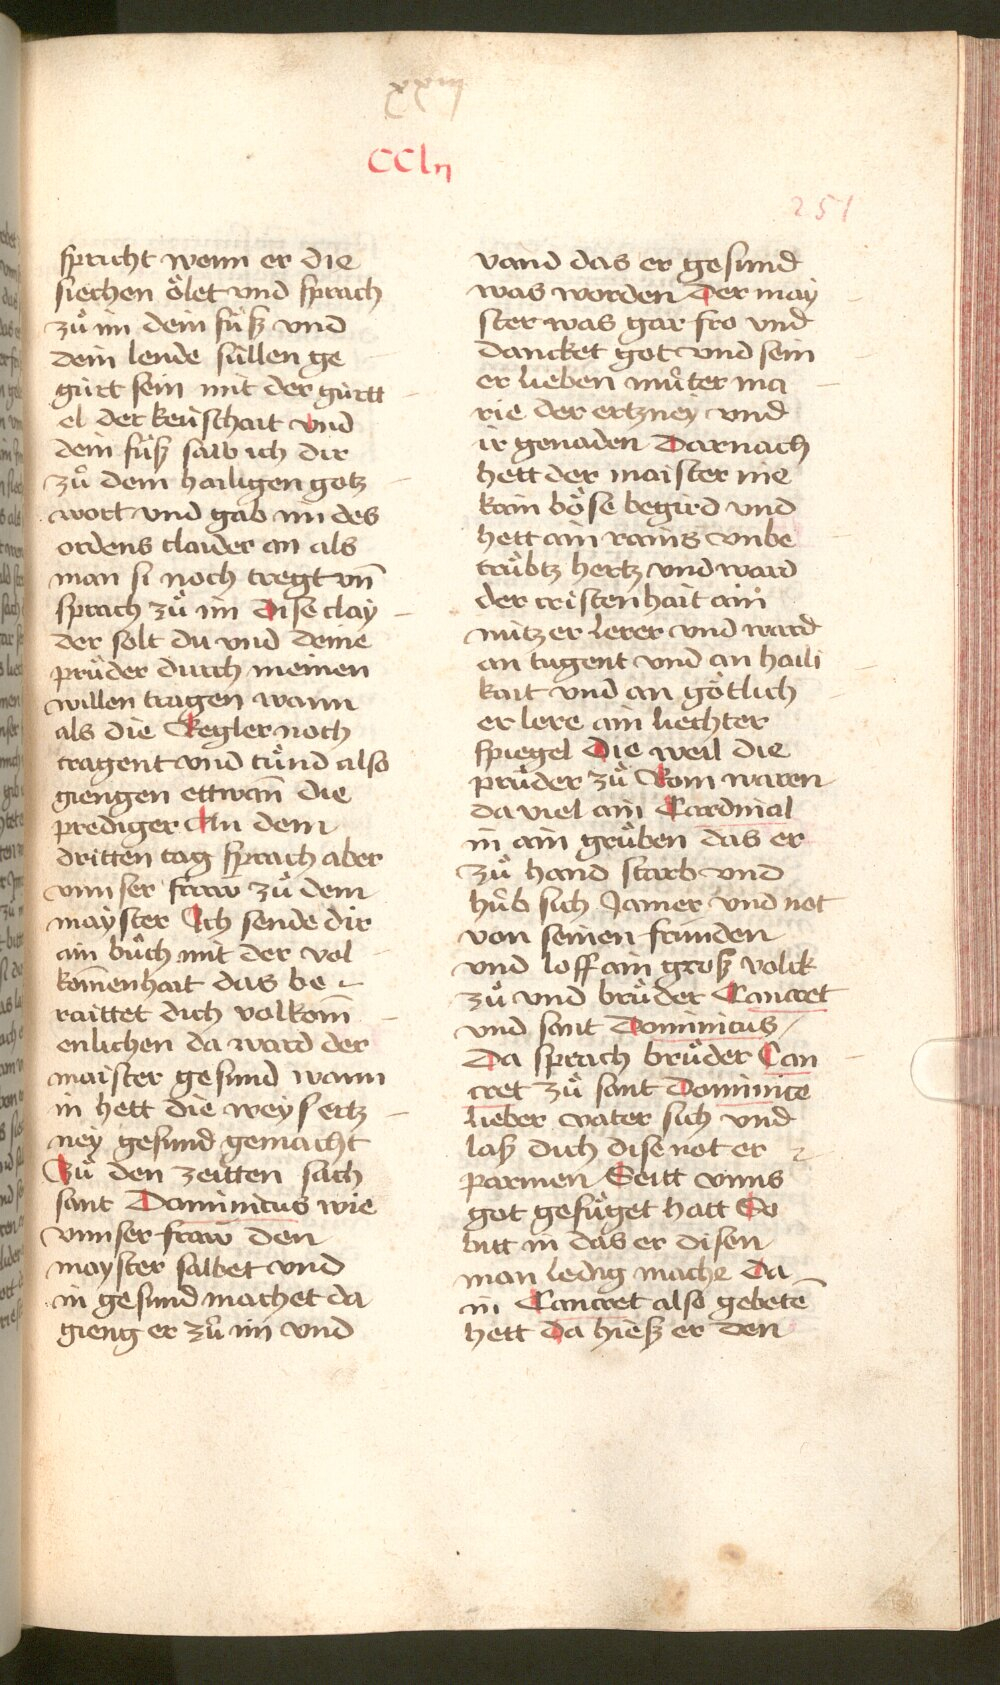 CClij
251
spricht wenn er die
siechen ölet vnd sprach
zů im dein füß vnd
dein lende süllen ge
gürt sein mit der gürtt
el der keüschait vnd
dein füß salb ich dir
zů dem hailigen gotz
wort vnd gab im des
ordens claider an als
man si noch tregt vn̄
sprach zů im Dise clay
der solt du vnd deine
prüder durch meinen
willen tragen wann
als die Regler noch
tragent vnd tünd also
giengen ettwan̄ die
prediger An dem
dritten tag sprach aber
vnnser fraw zů dem
mayster Ich sende dir
ain bůch mit der vol
kom̄enhait das be
raittet dich volkom̄
enlichen da ward der
maister gesund wann
in hett die weys ertz
ney gesund gemacht
Zů den zeitten sach
sant Dominicus wie
vnnser fraw den
mayster salbet vnd
in gesund machet da
gieng er zů im vnd
vand das er gesund
was worden Der may
ster was gar fro vnd
dancket got vnd sein
er lieben můter ma
rie der ertzney vnd
ir genaden Darnach
hett der maister nie
kain böse begird vnd
hett ain rains vnbe
trübtz hertz vnd ward
der cristenhait ain
nützer lerer vnd ward
an tugent vnd an haili
kait vnd an götlich
er lere ain liechter
spiegel Die weil die
prüder zů Rom waren
da viel ain Cardinal
in ain grůben das er
zů hand starb vnd
hůb sich Jamer vnd not
von seinen frunden
vnd loff ain groß volck
zů vnd brůder Tancret
vnd sant Dominicus
Da sprach brůder Tan
cret zů sant Dominice
lieber vater sich vnd
laß dich dise not er
parmen Seitt vnns
got gefüget hatt So
bitt in das er disen
man ledig mache Da
in Tancret also gebetē
hett da hieß er den